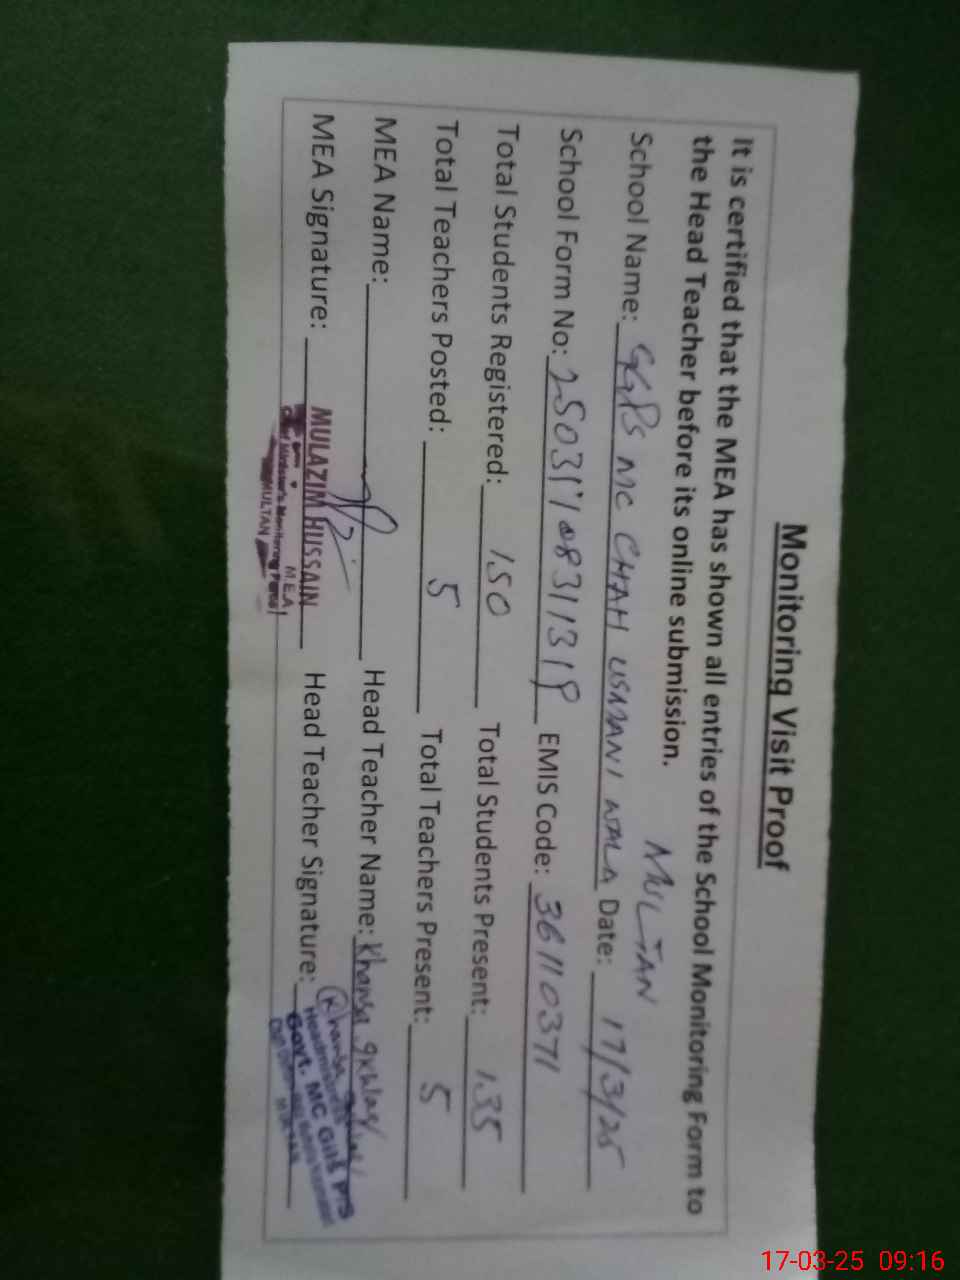 Monitoring Visit Proof
It is certified that the MEA has shown all entries of the School Monitoring Form to
the Head Teacher before its online submission.
MULTAN
School Name: GGPS MC CHAH USMANI WALA Date: 17/3/25
School Form No: EMIS Code: 361110371
Total Students Registered: 150 Total Students Present: 135
Total Teachers Posted: 5 Total Teachers Present: 5
MEA Name: Head Teacher Name: Khansa
MEA Signature: MULAZIM HUSSAIN Head Teacher Signature: Khansa
M.E.A
Chief Minister's Monitoring Force
MULTAN
Headmistress
Govt. MC Girls P/S
17-03-25 09:16